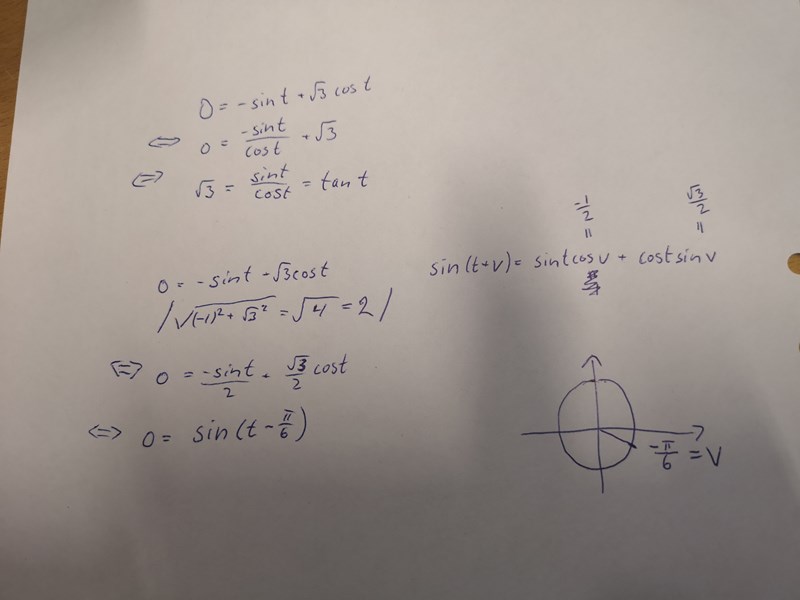 0 = -sin t + √3 cos t
⇔ 0 = -sin t / cos t + √3
⇔ √3 = sin t / cos t = tan t
0 = -sin t - √3 cos t
/ √((-1)² + √3²) = √4 = 2 /
⇔ 0 = -sin t / 2 + √3/2 cos t
⇔ 0 = sin(t - π/6)
-1/2 √3/2
= =
sin(t+v) = sin t cos v + cos t sin v
-π/6 = v